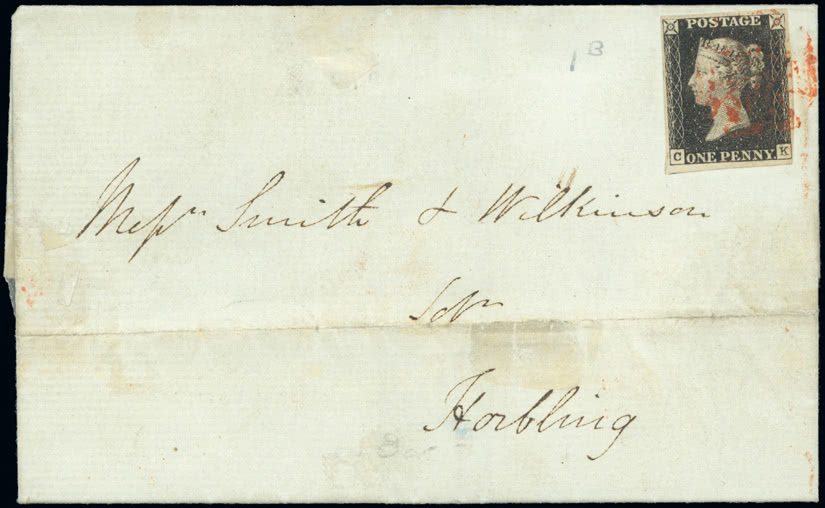 POSTAGE
C ONE PENNY K
1 B
Messrs Smith & Wilkinson
Solrs
Horbling